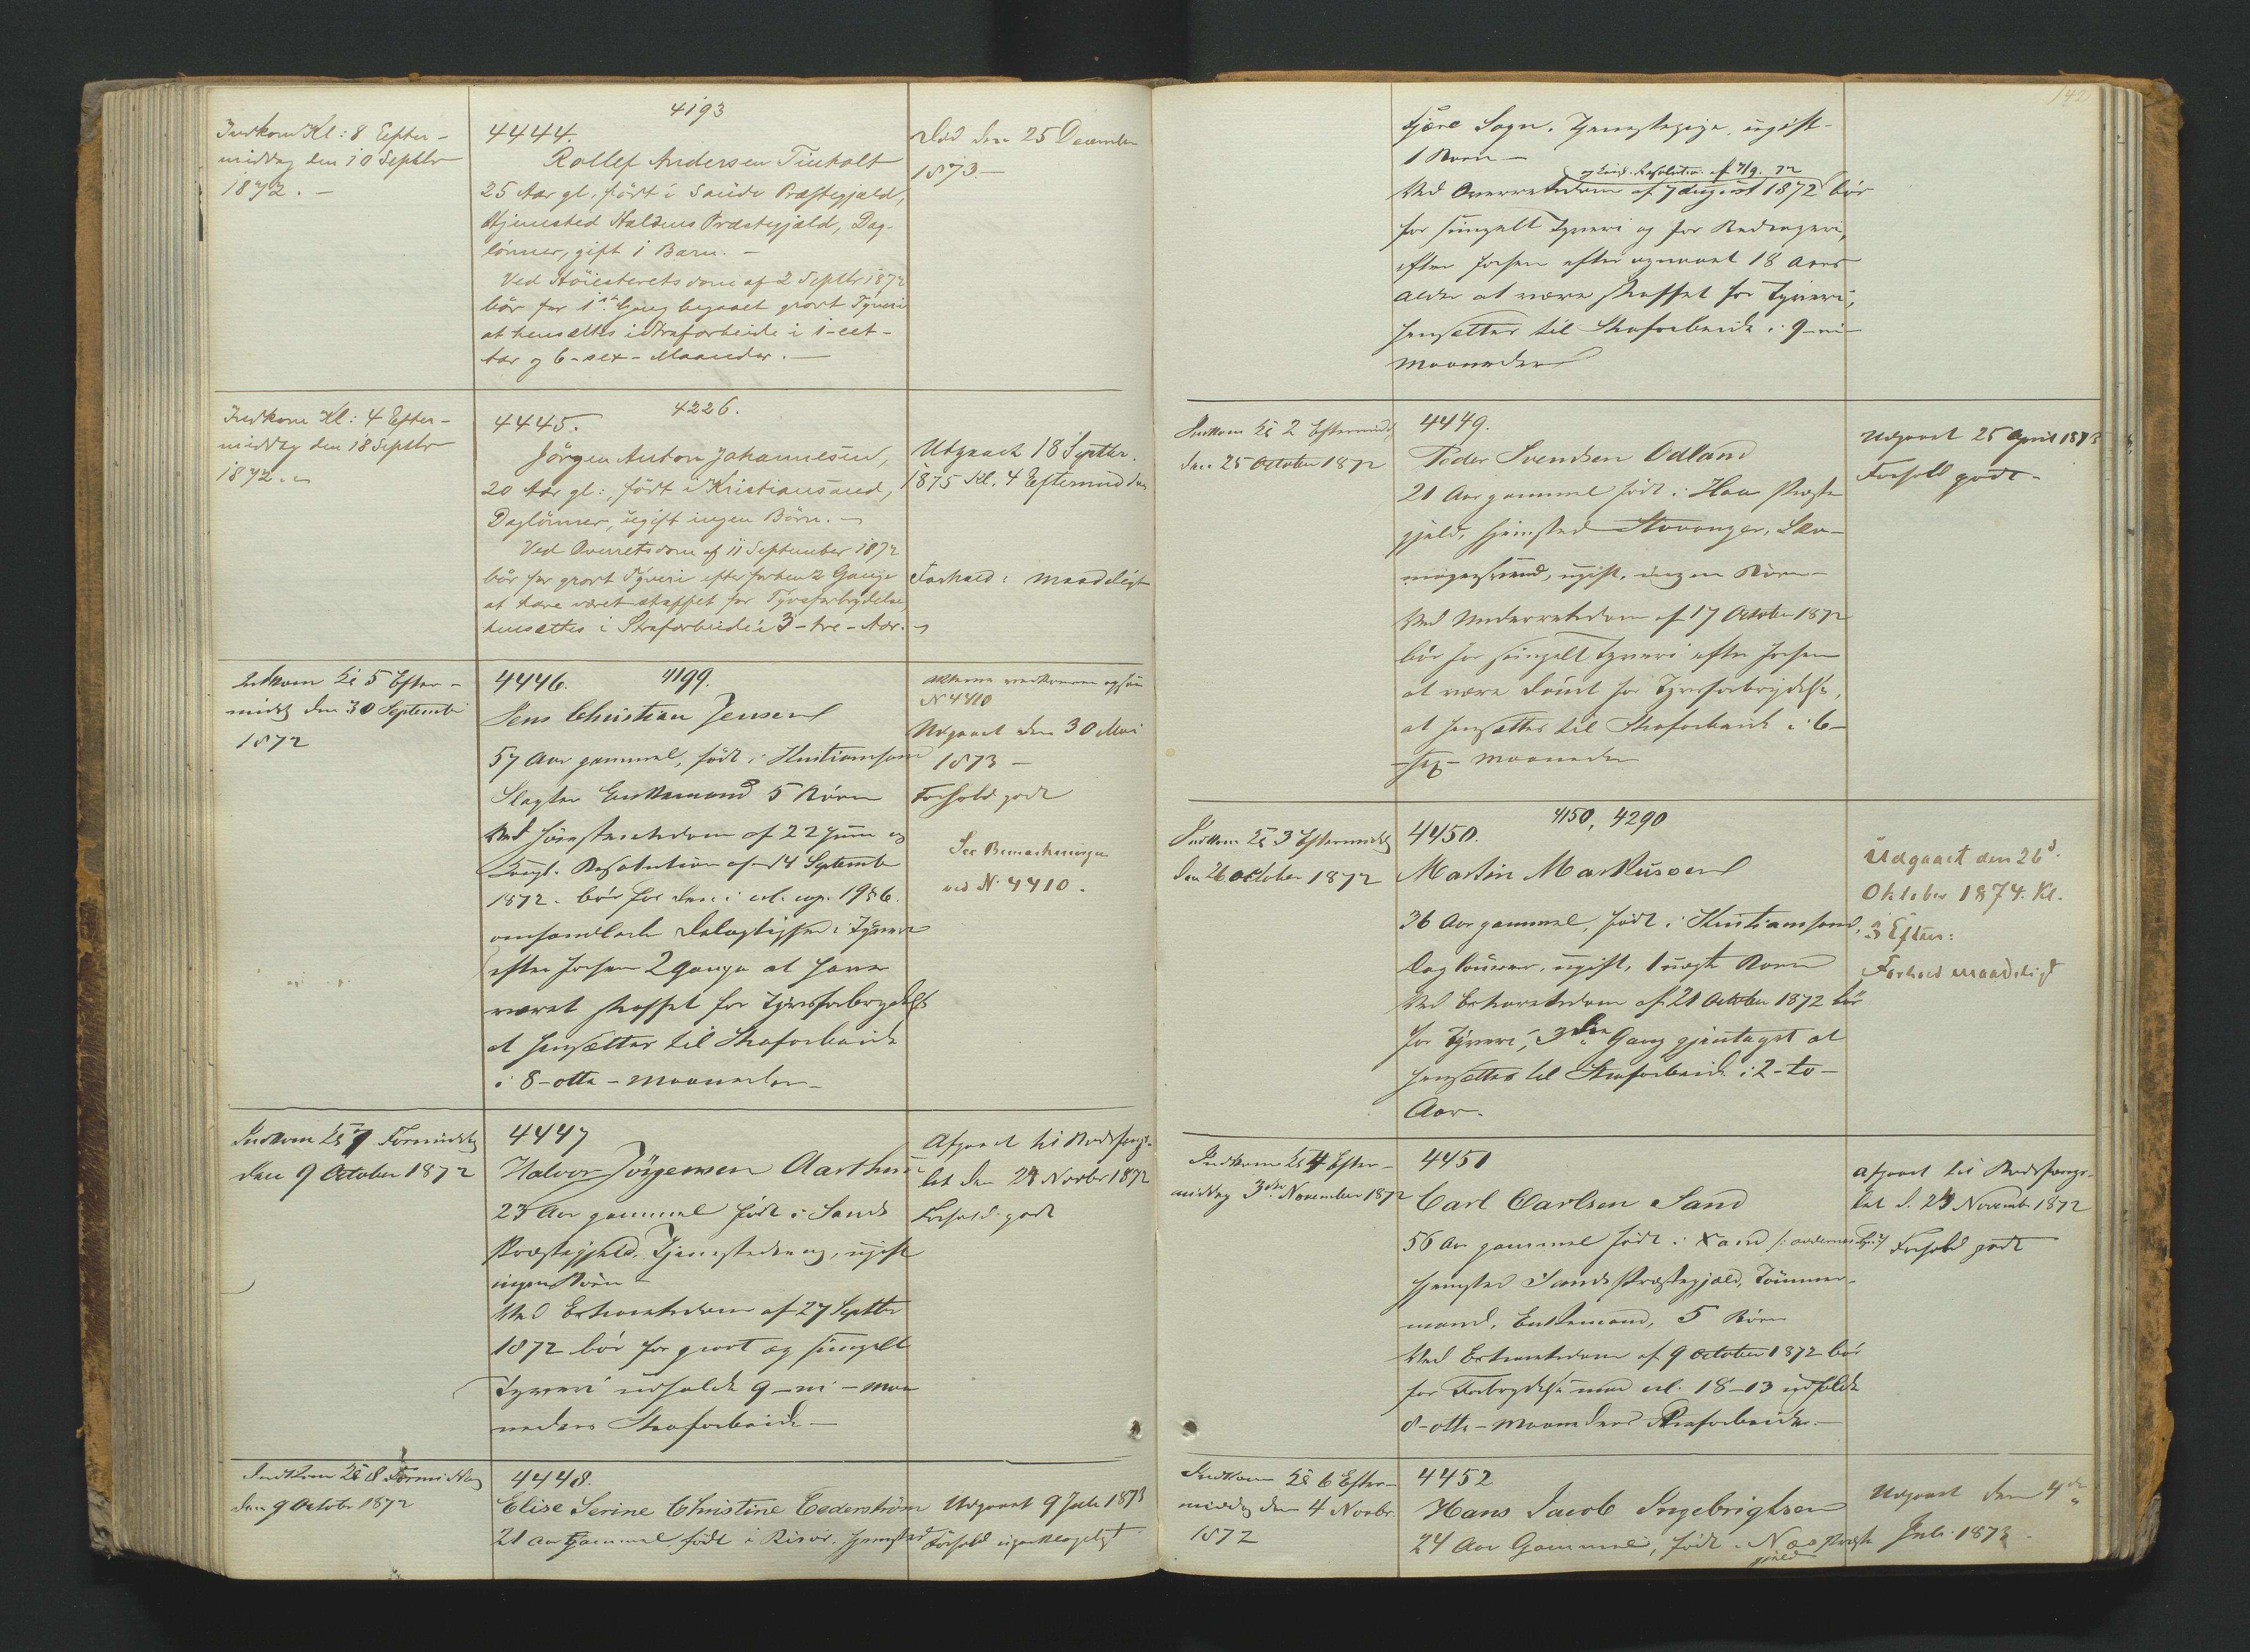 4193
Indkom Kl: 8 Efter-
middag den 10 Septbr
1872. -
4444.
Rollef Andersen Tinholt
25 Aar gl., født i Saude Præstegjæld,
Hjemsted Haldens Præstegjæld, Dag-
lönner, gift 1 Barn. -
Ved Höiesteretsdom af 2 Septbr 1872
bör for 1ste Gang begaaet grovt Tyveri
at hensættes i Strafarbeide i 1-eet-
Aar og 6-sex-Maaneder. -
Död den 25 December
1873. -
Indkom Kl: 4 Efter-
middag den 18 Septbr
1872. -
4226.
4445.
Jörgen Anton Johannesen,
20 Aar gl:, födt i Kristiansand,
Daglönner, ugift ingen Börn. -
Ved Overretsdom af 11 September 1872
bör for grovt Tyveri efter forhen 2 Gange
at have været straffet for Tyvsforbrydelse,
hensættes i Strafarbeide i 3-tre-Aar. -
Udgaaet 18 Septbr.
1875 Kl. 4 Eftermiddag
Forhold: maadeligt
Indkom Kl 5 Efter-
middg den 30 Septembr
1872
4446. 4199.
Jens Christian Jensen
57 Aar gammel, födt i Kristiansand
Slagter Enkemand 5 Börn
Ved Höiesteretsdom af 22 Juni og
Kongl. Resolution af 14 Septembr
1872. bör for den i crl. cap. 19 § 6.
omhandlede Delagtighed i Tyveri
efter forhen 2 Gange at have
været straffet for Tyvsforbrydelse
at hensættes til Strafarbeide
i 8-otte-Maaneder -
Akterne vedkommer ogsaa
N 4410
Udgaaet den 30 Mai
1873 -
Forhold godt
See Bemærkningen
ved N. 4410.
Indkom Kl 7 Formiddag
den 9 October 1872
4447
Halvor Jörgensen Aarthun
23 Aar gammel födt i Sands
Præstegjæld. Tjenestedreng, ugift
ingen Börn -
Ved Extraretsdom af 27 Septbr
1872 bör for grovt og simpelt
Tyveri udholde 9-ni-Maa
neders Strafarbeide -
Afgaaet til Bodsfængs-
let den 24 Novbr 1872
Forhold godt
Indkom Kl 8 Formiddag
den 9 Octobr 1872
4448.
Elise Serine Christine Cederström
21 Aar gammel födt i Risör, Hjemsted
Udgaaet 9 Juli 1873
Forhold upaaklageligt
Fjære Sogn. Tjenestepige, ugift-
1 Barn -
og Kongl. Resolution af 7/9. 72
Ved Overretsdom af 7 August 1872 bör
for simpelt Tyveri og for Bedrageri,
efter forhen efter opnaaet 18 Aars
Alder at være straffet for Tyveri,
hensættes til Strafarbeide i 9-ni-
Maaneder
Indkom Kl 2 Eftermiddg
den 25 October 1872
4449.
Peder Svendsen Odland
21 Aar gammel födt i Haa Præste
gjæld, Hjemsted Stavanger, Sko-
magersvend, ugift, ingen Börn -
Ved Underretsdom af 17 October 1872
bör for simpelt Tyveri efter forhen
at være dömt for Tyvsforbrydelse,
at hensættes til Strafarbeide i 6-
-sex- Maaneder
Udgaaet 25 April 1873
Forhold godt -
Indkom Kl 3 Eftermiddg
den 26 October 1872
4150, 4290
4450.
Martin Markusen
36 Aar gammel, födt i Kristiansand,
Daglönner, ugift, 1 uægte Barn
Ved Extraretsdom af 21 October 1872 bör
for Tyveri, 3die Gang gjentaget at
hensættes til Strafarbeide i 2-to-
Aar.
Udgaaet den 26d.
Oktober 1874. Kl.
3 Efterm:
Forhold maadeligt
Indkom Kl 4 Efter-
middag 3die November 1872
4451
Carl Carlsen Sand
56 Aar gammel födt i
Hjemsted Sands Præstegjæld, Tömmer-
mand, Enkemand, 5 Börn
Ved Extraretsdom af 9 October 1872 bör
for Forbrydelse mod crl. 18-13 udholde
8-otte-Maaneders Strafarbeide. -
Afgaaet til Bodsfængs-
let d. 24 Novembr 1872
Forhold godt
Indkom Kl 6 Efter-
middag den 4 Novbr.
1872
4452
Hans Jacob Ingebrigtsen
24 Aar Gammel, födt i Næs Præste
gjæld
Udgaaet den 4de
Juli 1873.